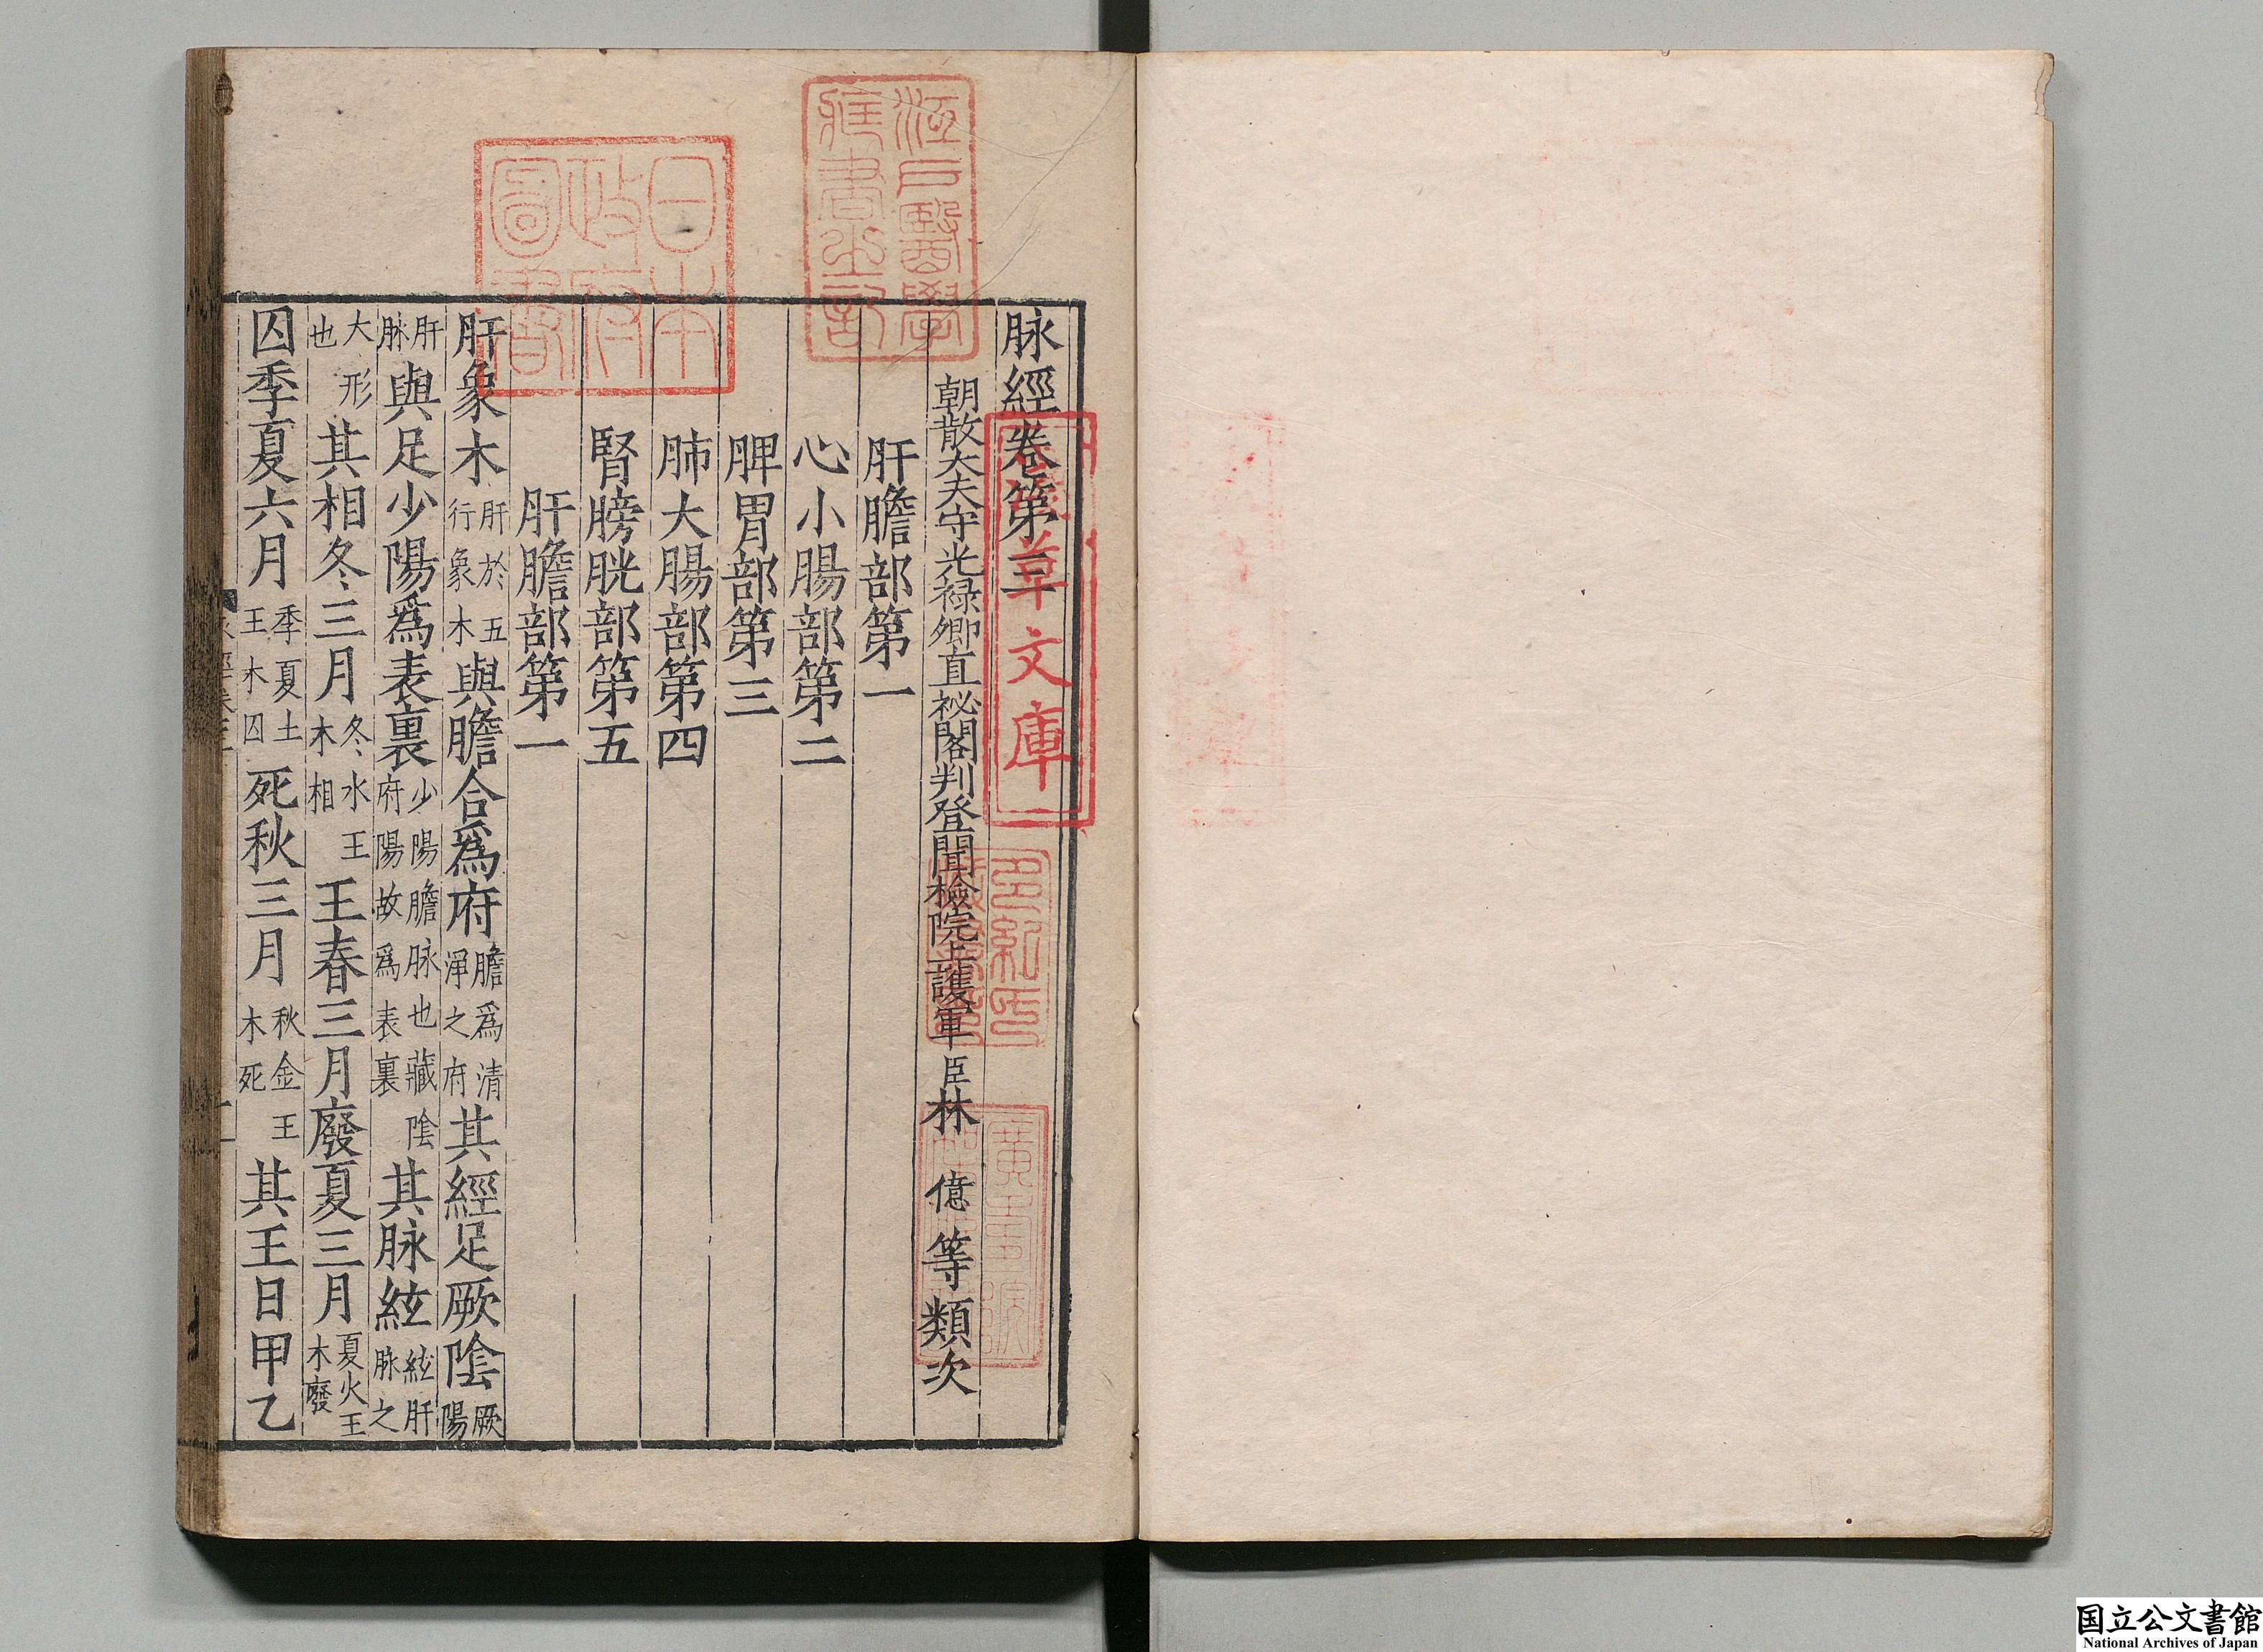 脉經卷第三
朝散大夫守光禄卿直祕閣判登聞檢院上護軍臣林億等類次
肝膽部第一
心小腸部第二
脾胃部第三
肺大腸部第四
腎膀胱部第五
肝膽部第一
肝象木肝於五行象木與膽合爲府膽爲清淨之府其經足厥陰厥陽
肝脉與足少陽爲表裏少陽膽脉也藏陰府陽故爲表裏其脉絃絃肝脉之
大形也其相冬三月冬水王木相王春三月廢夏三月夏火王木廢
囚季夏六月季夏土王木囚死秋三月秋金王木死其王日甲乙
江戸醫學
藏書之記
日本
政府
圖書
躋壽
文庫
多紀氏
藏書印
国立公文書館
National Archives of Japan